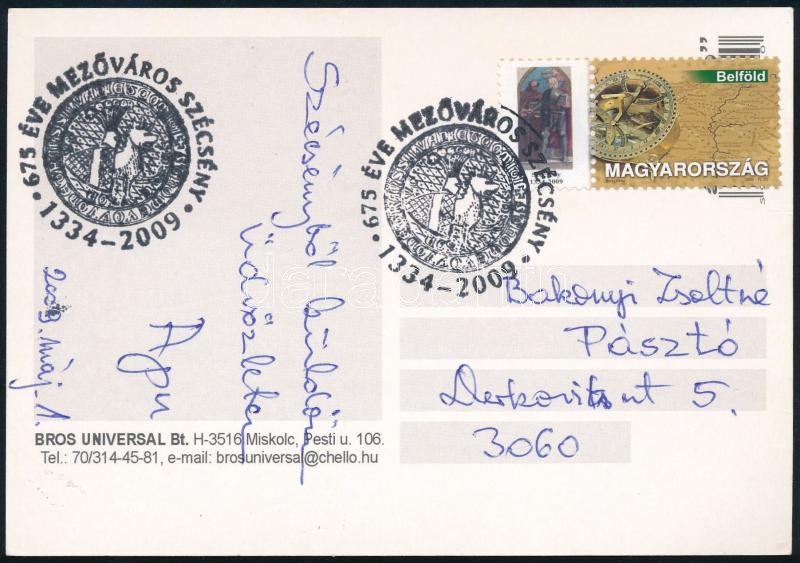 675 ÉVE MEZŐVÁROS SZÉCSÉNY
1334-2009
Szécsényből küldöm
üdvözletem
Apu
2009. máj. 1.
675 ÉVE MEZŐVÁROS SZÉCSÉNY
1334-2009
Belföld
MAGYARORSZÁG
Bakonyi Zsoltné
Pásztó
Derkovits út 5.
3060
BROS UNIVERSAL Bt. H-3516 Miskolc, Pesti u. 106.
Tel.: 70/314-45-81, e-mail: brosuniversal@chello.hu